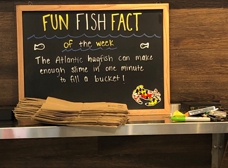 FUN FISH FACT
of the week
The Atlantic hagfish can make
enough slime in one minute
to fill a bucket!